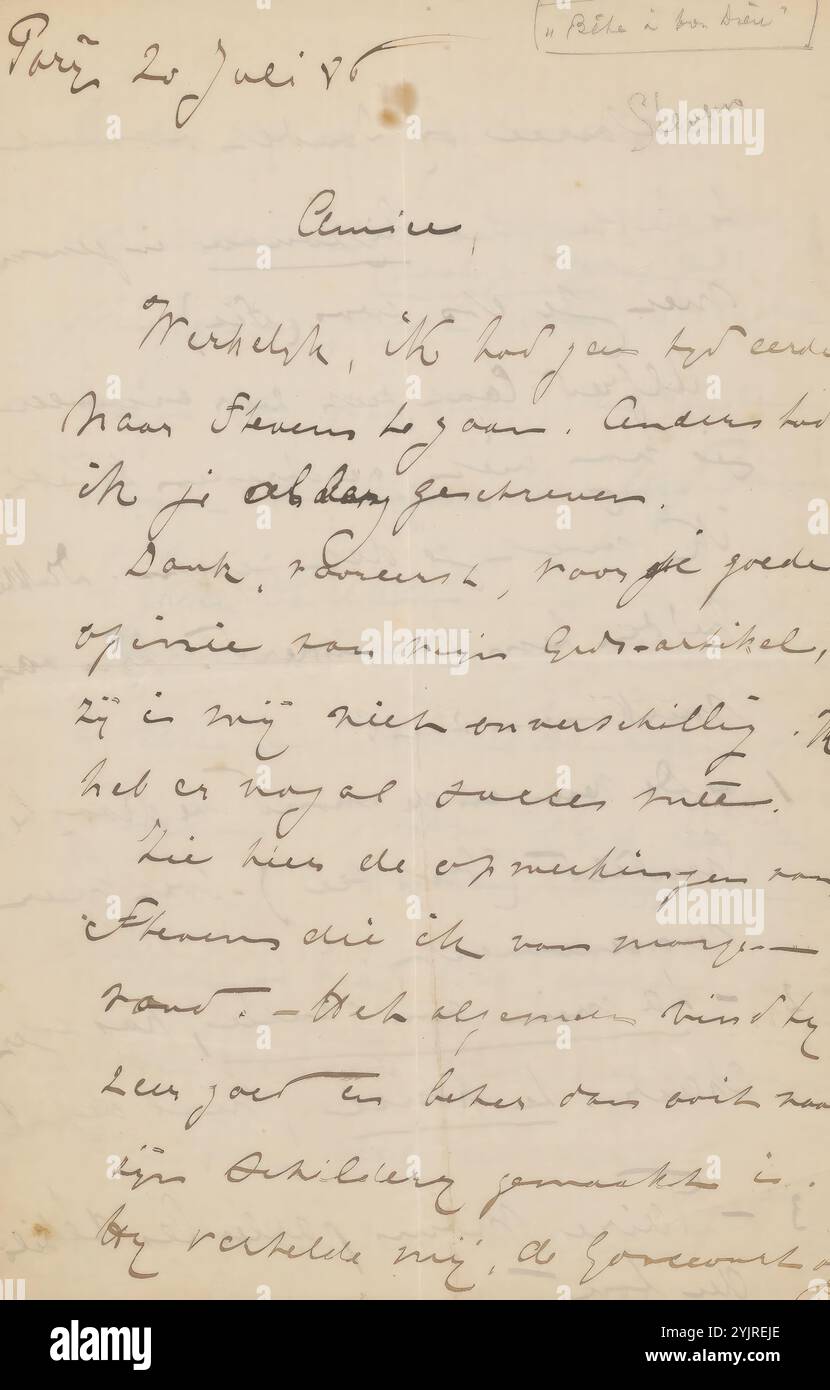 „Bête à bon Dieu”
Parijs 20 Juli 86
Stevens
Amice,
Werkelijk, ik had geen tijd eerde
naar Stevens te gaan. Anders had
ik je al lang geschreven.
Dank, vooreerst, voor je goede
opinie van mijn Gids-artikel,
zij is mij niet onverschillig. Ik
heb er nogal succes mee.
Zie hier de opmerkingen van
Stevens die ik van morgen
vond. – Het algemeen vindt hij
zeer goed en beter dan ooit naar
zijn schilderij gemaakt is.
Hij vertelde mij, de Goncourt
alamy
Image ID: 2YJREJE
www.alamy.com